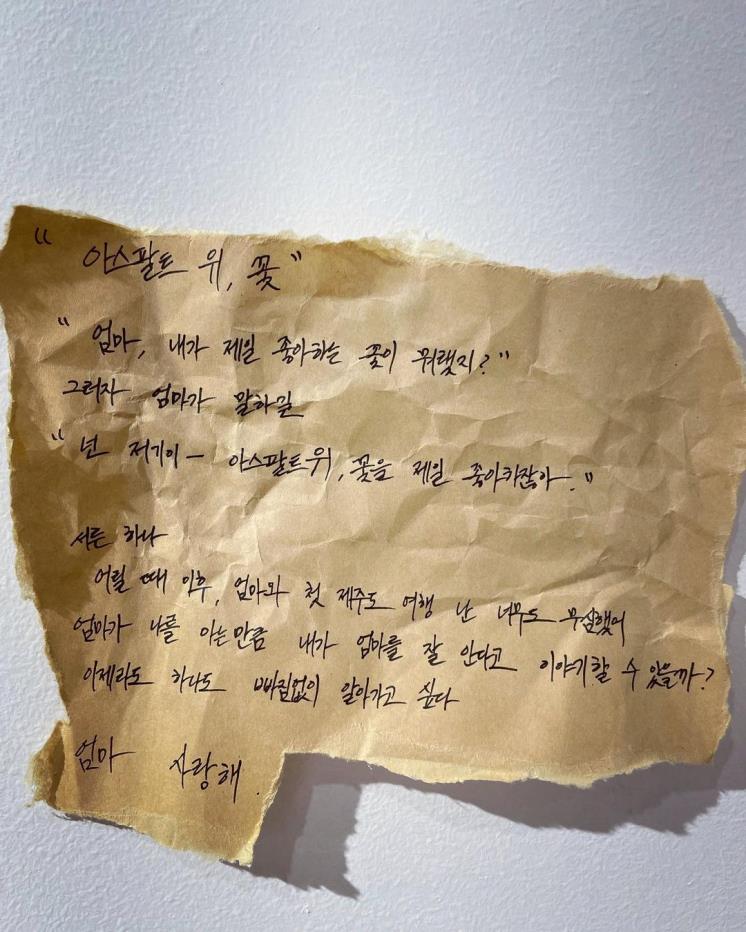 "아스팔트 위, 꽃"
"엄마, 내가 제일 좋아하는 꽃이 뭐랬지?"
그러자 엄마가 말하길
"넌 저기이— 아스팔트위, 꽃을 제일 좋아하잖아."
서른 하나
어릴 때 이후, 엄마와 첫 제주도 여행 난 너무도 무심했어
엄마가 나를 아는만큼 내가 엄마를 잘 안다고 이야기할 수 있을까?
이제라도 하나도 빠짐없이 알아가고 싶다
엄마 사랑해.